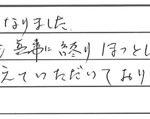 なりました。
無事に終りほっとし
えていただいており